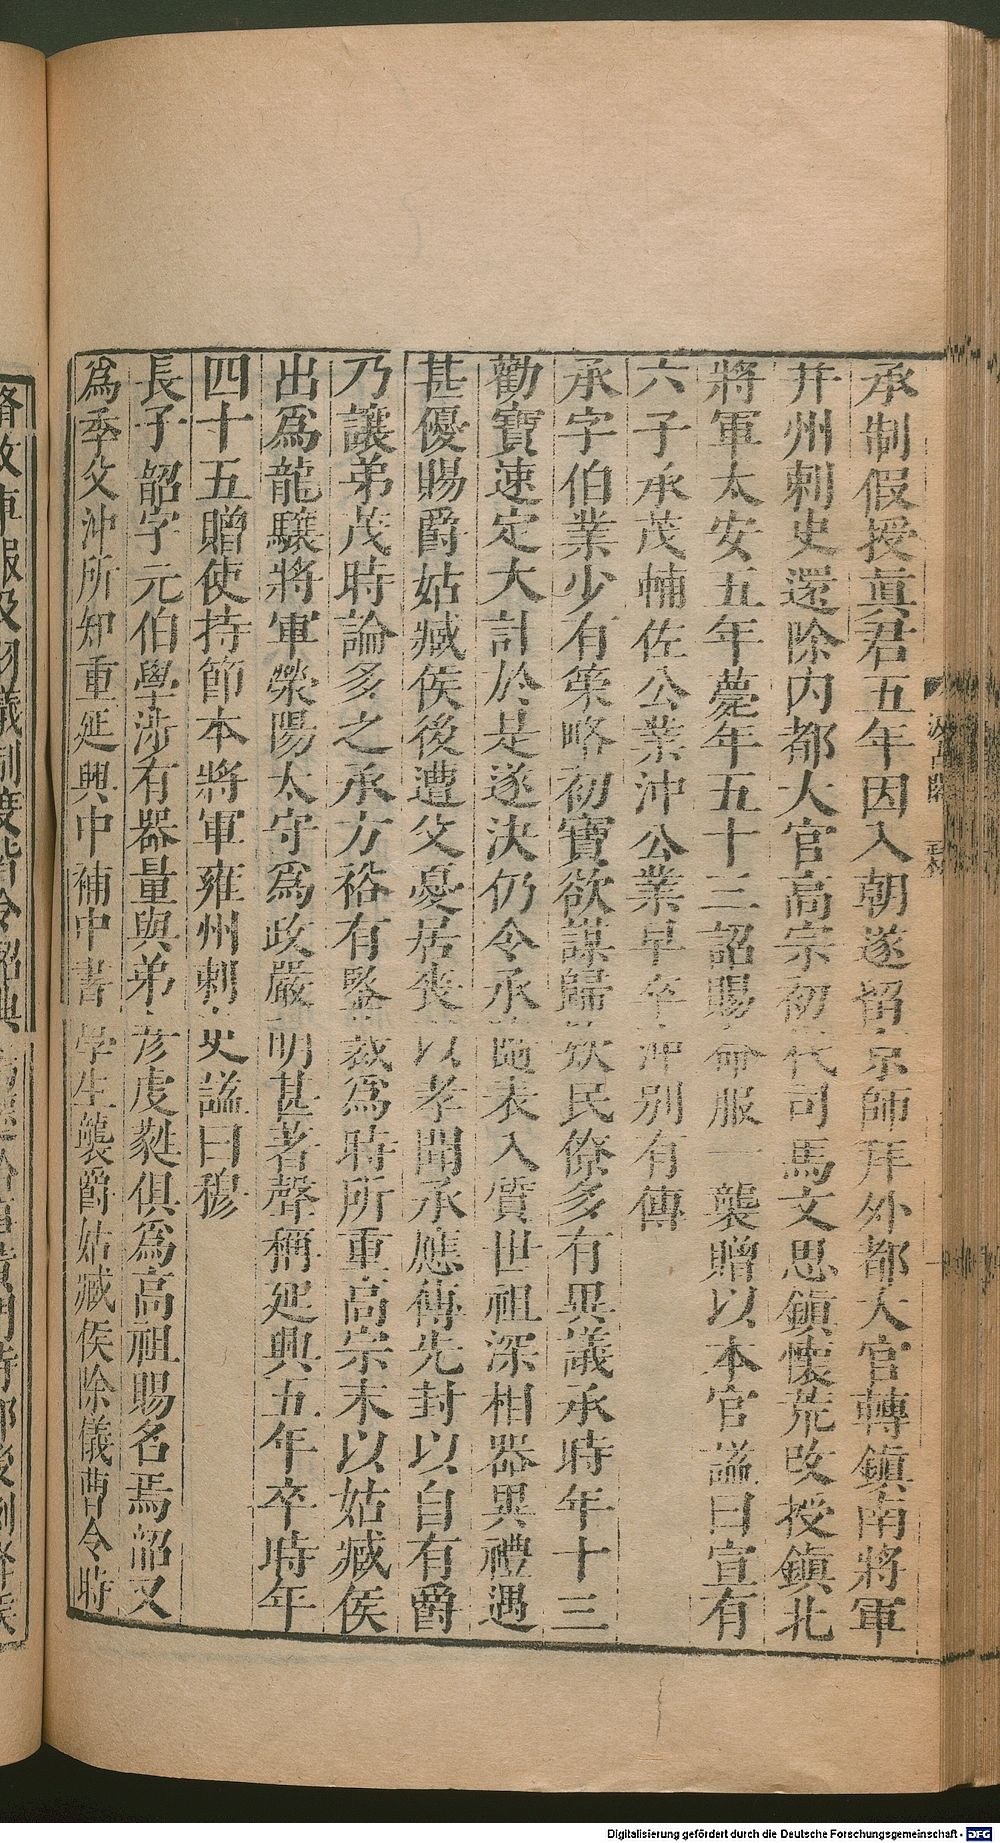 承制假授真君五年因入朝遂留京師拜外都大官轉鎮南將軍
并州刺史還除内都大官高宗初代司馬文思鎮懷荒改授鎮北
將軍太安五年薨年五十三詔賜命服一襲贈以本官謚曰宣有
六子承茂輔佐公業沖公業早卒沖別有傳
承字伯業少有策略初寶欲謀歸欵民僚多有異議承時年十三
勸寶速定大計於是遂決仍令承隨表入質世祖深相器異禮遇
甚優賜爵姑臧侯後遭父憂居喪以孝聞承應傳先封以自有爵
乃讓弟茂時論多之承方裕有鑒裁爲時所重高宗末以姑臧侯
出爲龍驤將軍滎陽太守爲政嚴明甚著聲稱延興五年卒時年
四十五贈使持節本將軍雍州刺史謚曰穆
長子韶字元伯學涉有器量與弟彦虔蕤俱爲高祖賜名焉韶又
爲季父沖所知重延興中補中書學生襲爵姑臧侯除儀曹令時
修改車服及羽儀制度皆令韶典
汲古閣
Digitalisierung gefördert durch die Deutsche Forschungsgemeinschaft - DFG